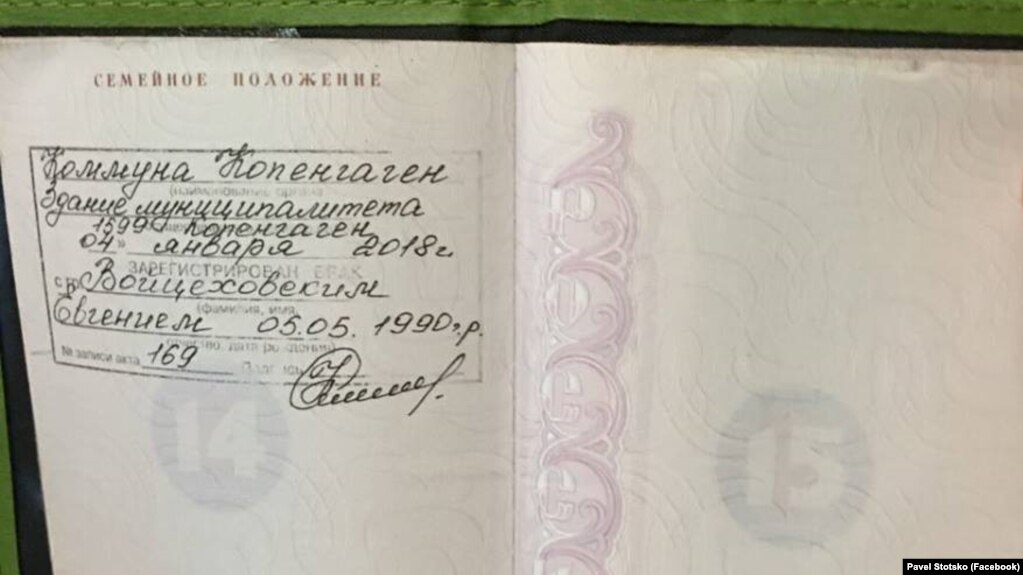 СЕМЕЙНОЕ ПОЛОЖЕНИЕ
Коммуна Копенгаген
(наименование органа
Здание муниципалитета
1599 Копенгаген
04 » января 2018 г.
ЗАРЕГИСТРИРОВАН БРАК
с гр. Войцеховским
(фамилия, имя,
Евгением 05.05. 1990 г.р.
отчество, дата рождения)
№ записи акта 169 Подпись
14
15
Pavel Stotsko (Facebook)